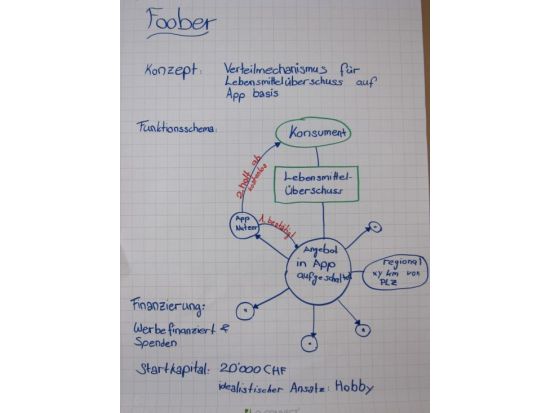 Foober
Konzept: Verteilmechanismus für
Lebensmittelüberschuss auf
App basis
Funktionsschema:
Konsument
Lebensmittel-
überschuss
2. holt ab
kostenlos
App
Nutzer
1. bestätigt
Angebot
in App
aufgeschaltet
regional
xy km von
PLZ
Finanzierung:
Werbefinanziert &
Spenden
Startkapital: 20'000 CHF
idealistischer Ansatz: Hobby